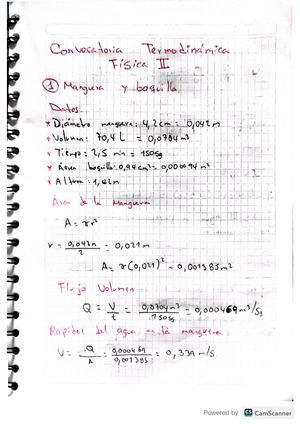 Convocatoria Termodinámica
Física II
① Manguera y boquilla
Datos:
* Diámetro manguera: 4,2cm = 0,042m
* Volumen: 70,4 L = 0,0704 m³
* Tiempo: 2,5 min = 150sg
* Área boquilla: 0,94cm² = 0,000094 m²
* Altura: 1,42m
Área de la Manguera
A = πr²
r = 0,042m / 2 = 0,021m
A = π(0,021)² = 0,001385m²
Flujo Volumen
Q = V / t = 0,0704 m³ / 150sg = 0,000469 m³/sg
Rapidez del agua en la manguera
V = Q / A = 0,000469 / 0,001385 = 0,339 m/s
Powered by CS CamScanner